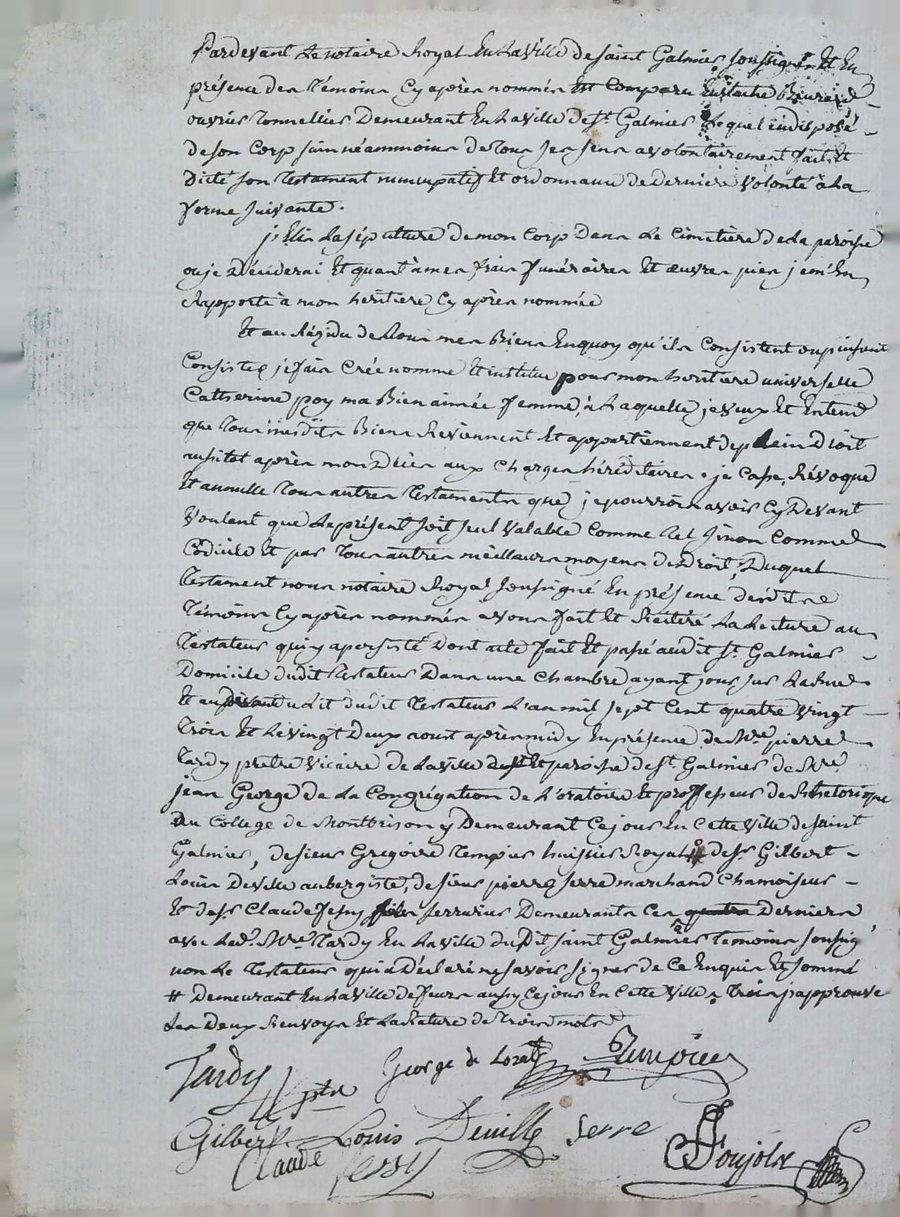 Pardevant Le notaire Royal En La Ville de saint Galmier soussigné Et En
présence des Témoins Cy après nommés Est Comparu Eustache
ouvrier Tonnellier Demeurant En La ville de st. Galmier Lequel indisposé
de son Corp sain néammoins de Tous ses sens a volontairement fait Et
Dicté son Testament nuncupatif Et ordonnance de derniere volonté à La
forme suivante.
j'Elis La sépulture de mon Corp Dans Le Cimetière de la paroisse
ou je Déciderai Et quant à mes frais funéraires Et œuvres pies je m'En
Rapporte à mon heritiere Cy après nommée
Et au Régidu de Tous mes Biens Enquoy qu'ils Consistent ou puissent
Consister je fais Crée nomme Et institue pour mon heritiere universelle
Catherine poy ma Bien aimée femme, à Laquelle je veux Et Entend
que Tous mesdits Biens Reviennent Et appartiennent de plein Droit
aussitot après mon Décès aux Charges héréditaires. je Casse, Révoque
Et annulle Tous autres Testaments que je pourrois avoir Cy Devant
Voulant que Le présent soit seul valable Comme Tel sinon Comme
Codicile Et par Tous autres meilleurs moyens de Droit, Duquel
Testament nous notaire Royal soussigné En présence desdits
Témoins Cy après nommés avons fait Et Réitéré La Lecture au
Testateur qui y a persisté Dont acte fait Et passé audit st. Galmier
Domicile dudit Testateur Dans une Chambre ayant jour sur La Rue
Et au Devant du Lit dudit Testateur L'an mil sept Cent quatre vingt
Trois Et Le vingt Deux aout après midy En présence de Mre pierre
Tardy prêtre Vicaire de La ville Et paroisse de st. Galmier de Mre
jean George de La Congrégation de L'oratoire Et professeur de Rhetorique
Du College de Montbrison y Demeurant Ce jour En Cette Ville de saint
Galmier, de sieur Gregoire Tempier huissier Royal # de sr. Gilbert
Louis Deville aubergiste, de sieur pierre serre marchand Chamoiseur
Et de sr. Claude Jessy serrurier Demeurants Ces quatre Derniers
avec Led. Mre Tardy En La ville dudit saint Galmier Témoins soussignés
non Le Testateur qui a Déclaré ne savoir signer de Ce Enquis Et sommé
# Demeurant En La Ville de feurs aussy Ce jour En Cette Ville, Trois j'approuve
Les Deux Renvoys Et La Rature de Trois mots
Tardy ptre George de Lorat. Tempier
Gilbert Louis Deville Serre
Claude Jessy Poujols